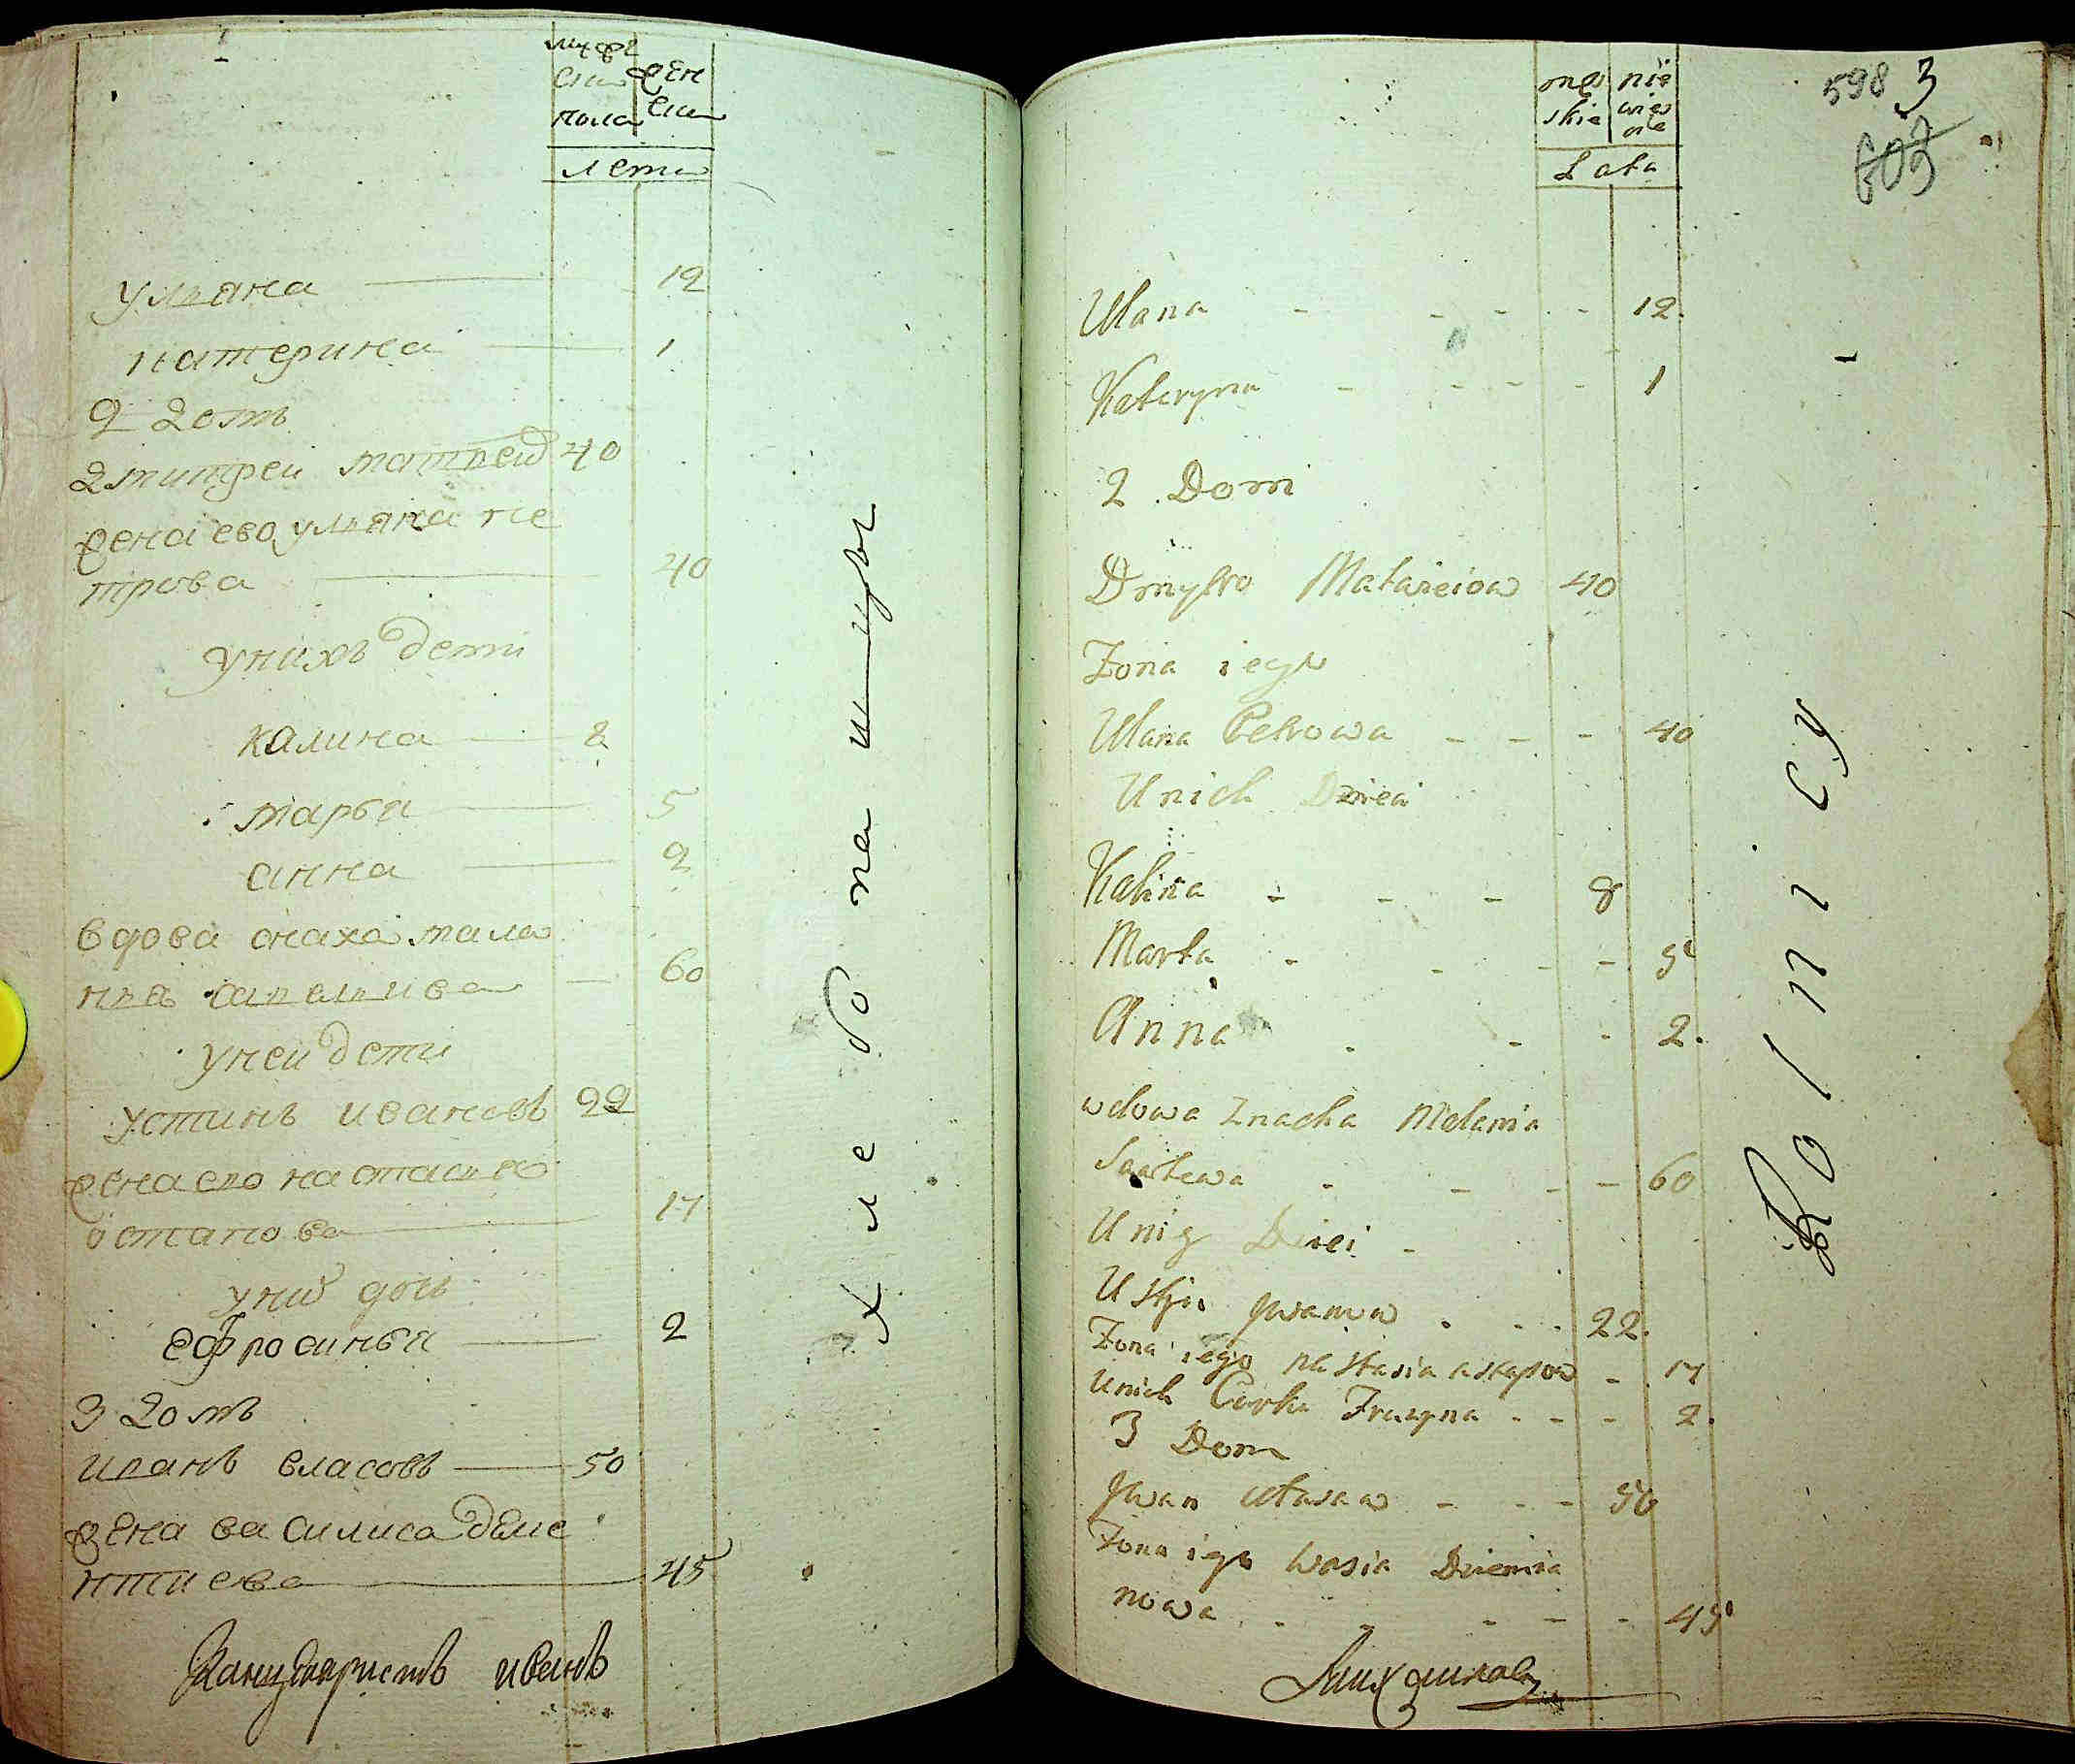 муже
ска
пола
жен
ска
лета
ульяна 12
катерина 1
2 домъ
дмитреи матвеив 40
жена ево ульяна пе
трова 40
у нихъ дети
калина 8
марья 5
анна 2
вдова снаха мала
нья савельива 60
у неи дети
устинъ ивановъ 22
жена его настасья
остапова 17
у них дочь
ефросинья 2
3 домъ
иванъ власовъ 50
жена василиса деме
нтиева 45
хлебопашцы
Канцеляристъ иванъ
męs
skie
nie
wies
nie
Lata
598 3
603
Ulana - - - - - 12.
Kateryna - - - - 1
2 Dom
Dmytro Matwieiow 40
Zona iego
Ulana Petrowa - - - 40
U nich Dzieci
Kalina - - - 8
Marta - - - - 5
Anna - - - 2.
wdowa Znacha Melania
Sawtewa - - - - 60
U niy Dziei -
Ustyn Jwanow - - - 22.
Zona iego Nastasia astapow - 17
U nich Curka Fruzyna - - - 2.
3 Dom
Jwan Własaw - - - 50
Zona igo Wasia Dziemia
nowa - - - - - 45
Rolnicy